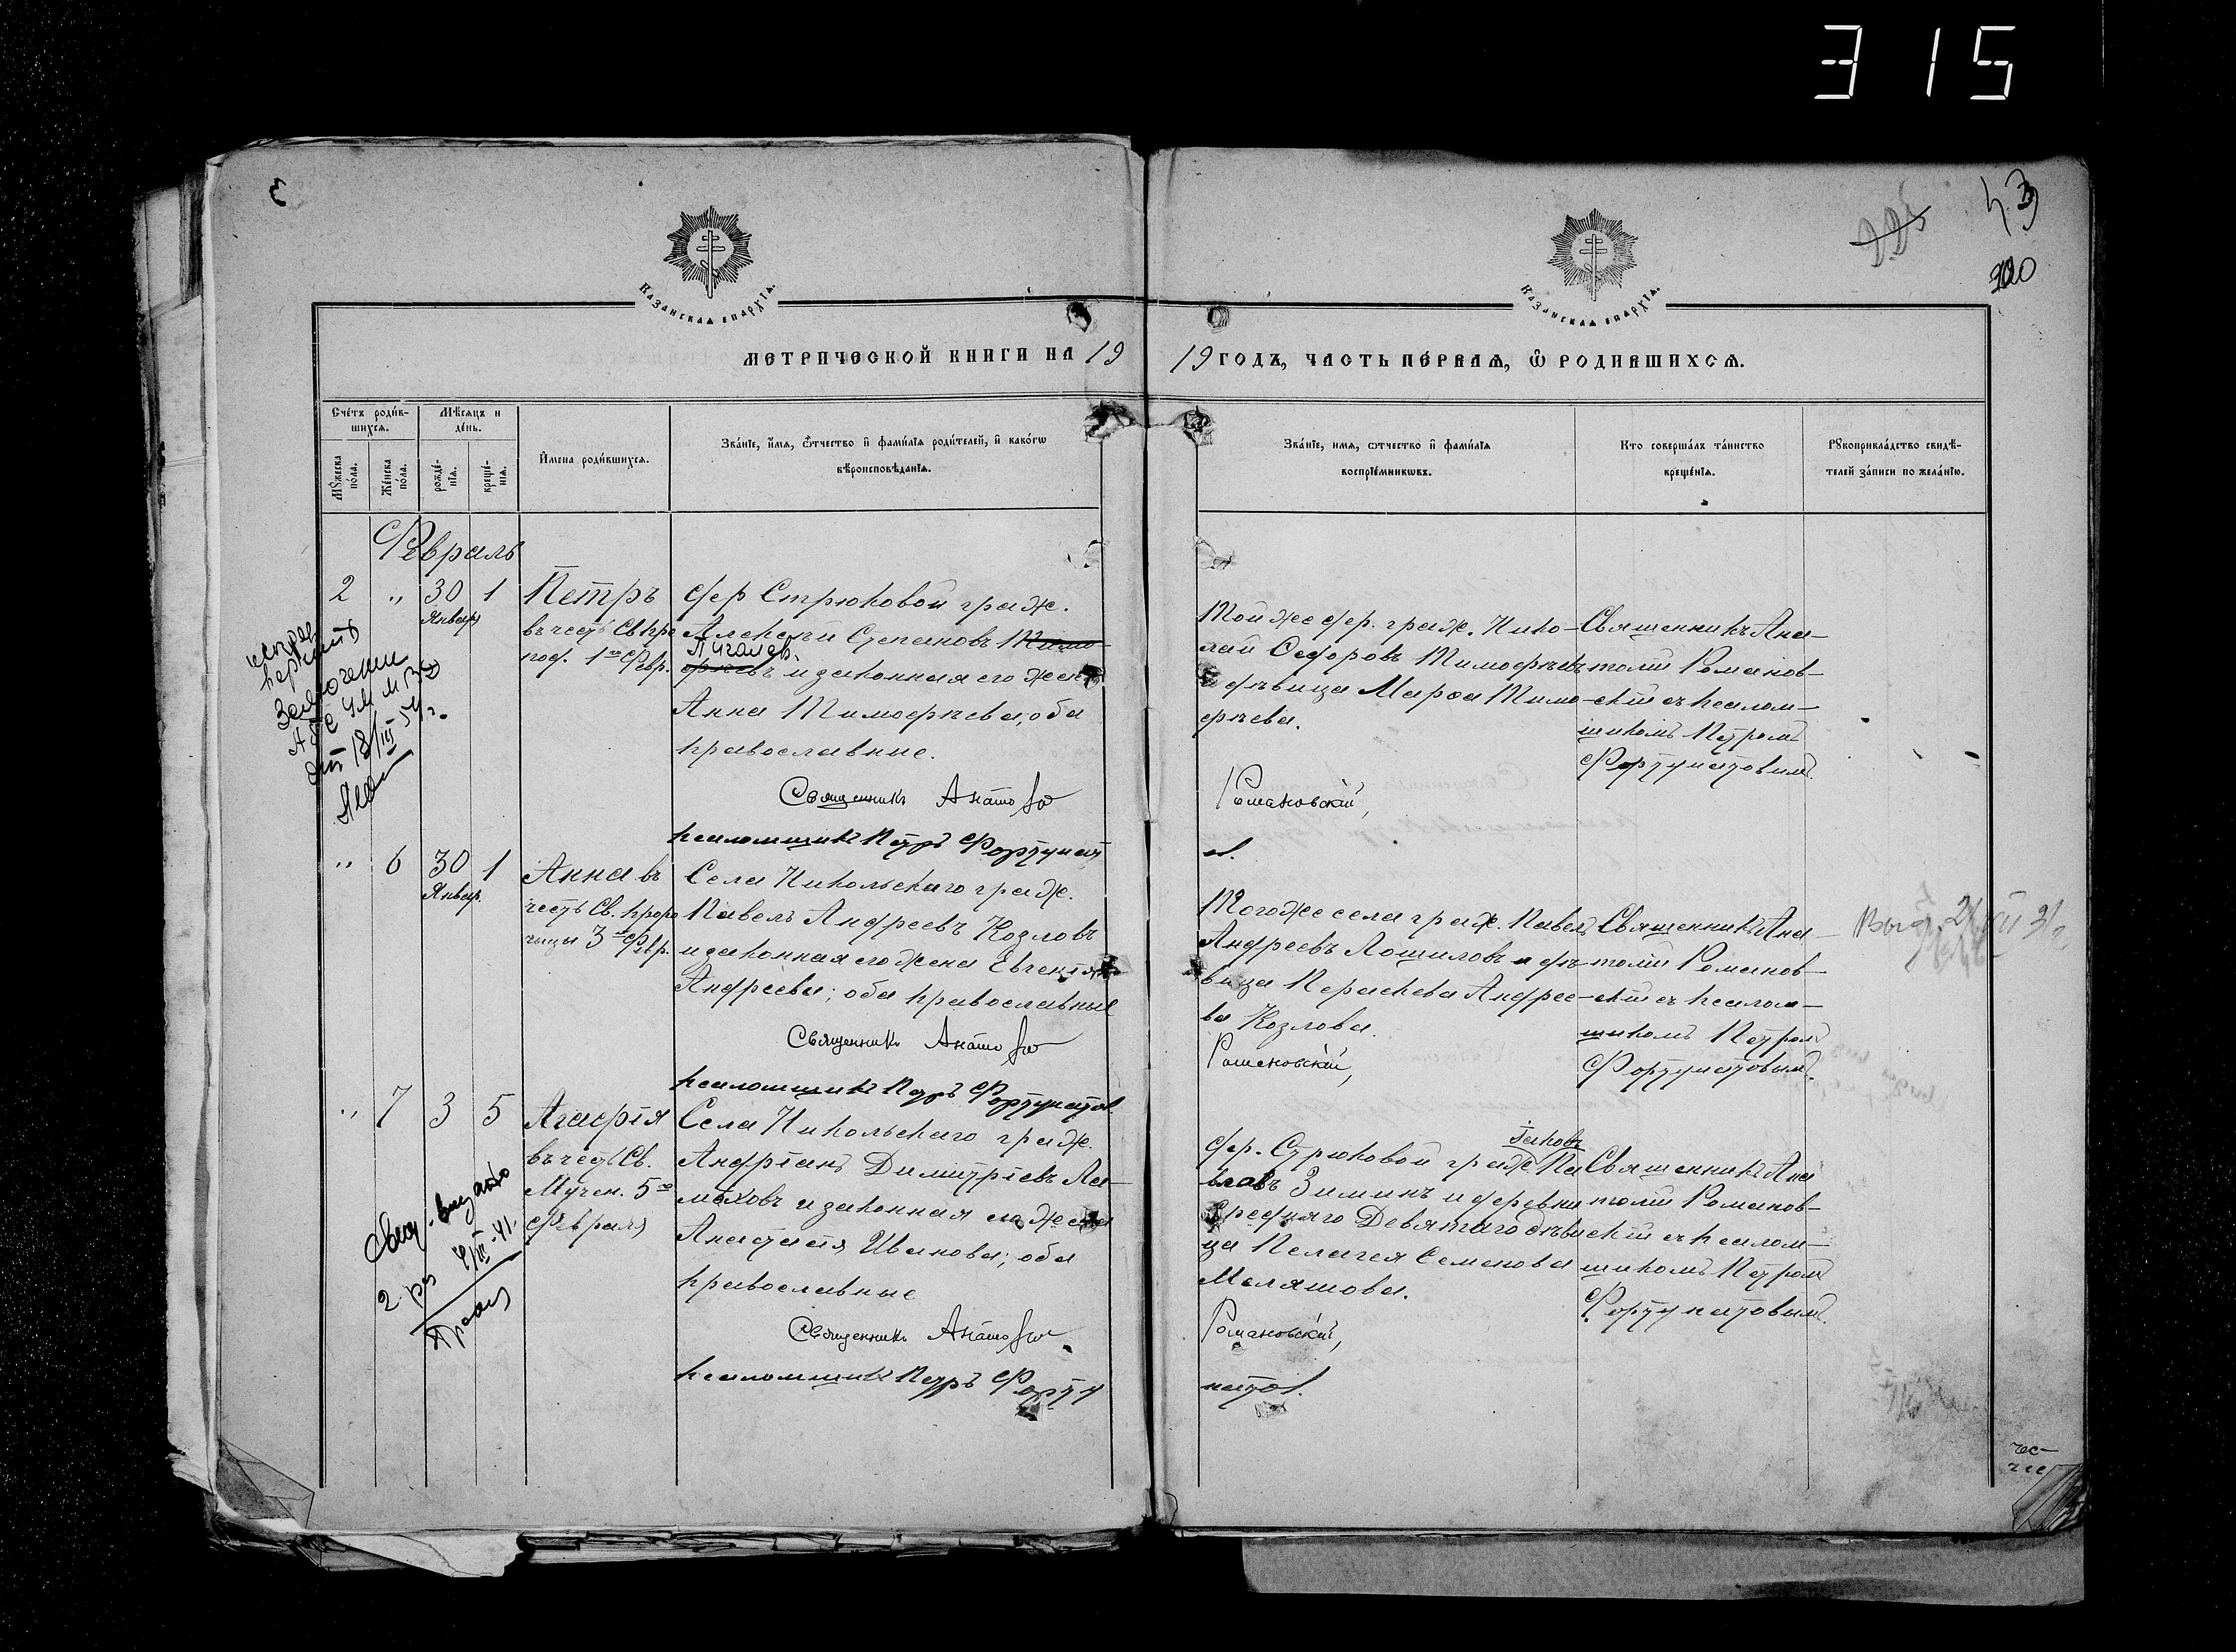 315
43
225
320
КАЗАНСКАЯ ЕПАРХІЯ.
КАЗАНСКАЯ ЕПАРХІЯ.
МЕТРИЧЕСКОЙ КНИГИ НА 19
19 ГОДЪ, ЧАСТЬ ПЕ́РВАЯ, Ѿ РОДИВШИХСЯ.
Сче́тъ роди́в-
шихся.
Мѣ́сяцъ и
де́нь.
Мꙋ́жеска
по́ла.
Же́нска
по́ла.
рожде́-
нїя.
креще́-
нїя.
И́мена роди́вшихся.
Зва́нїе, и́мя, ѻ́тчество и҆ фами́лїя роди́телей, и҆ како́гѡ
вѣроисповѣ́данїя.
Зва́нїе, имя, ѻтчество и҆ фами́лїя
воспрїе́мникѡвъ.
Кто соверша́лъ та́инство
креще́нїя.
Рꙋкоприкла́дство свидѣ́-
телей за́писи по жела́нїю.
Февраль
2 " 30 1
Январ.
Петръ
въ честь Св.
1го Февр.
дер Стрюковой граж.
Алексѣй Степановъ Тимо-
Пугачев
феевъ и законная его жена
Анна Тимофѣева; оба
православные.
Священникъ Анато
Романовскій,
псаломщикъ Петръ Фортунат
Той же дер. граж. Нико-
лай Федоровъ Тимофѣевъ
и дѣвица Марфа Тимо-
фѣева.
Священникъ Ана-
толій Романов-
скій съ псалом-
щикомъ Петромъ
Фортунатовымъ.
18/III 54г.
" 6 30 1
Январ.
Анна въ
честь Св. проро
чицы 3го Февр.
Села Никольскаго граж.
Павелъ Андреевъ Козловъ
и законная его жена Евгенія
Андреева; оба православные
Священникъ Анато
Романовскій,
псаломщикъ Петръ Фортунатов
Того же села граж. Павелъ
Андреевъ Лошиловъ и дѣ-
вица Параскева Андрее-
ва Козлова.
Священникъ Ана-
толій Романов-
скій съ псалом-
щикомъ Петром
Фортунатовым.
" 7 3 5
Агафія
въ честь Св.
Мучен. 5го
Февраля
Села Никольскаго граж.
Андріанъ Димитріевъ Ла-
маховъ и законная его жена
Анастасія Иванова; оба
православные
Священникъ Анато
Романовскій,
псаломщикъ Петръ Форту
натов.
дер. Стрюковой граж. Іаковъ Па
вловъ Зиминъ и деревни
Средняго Девятаго дѣви
ца Пелагея Семенова
Малящова.
Священникъ Ана
толій Романов-
скій съ псалом-
щикомъ Петром
Фортунатовым.
2 раз 4/III-41.